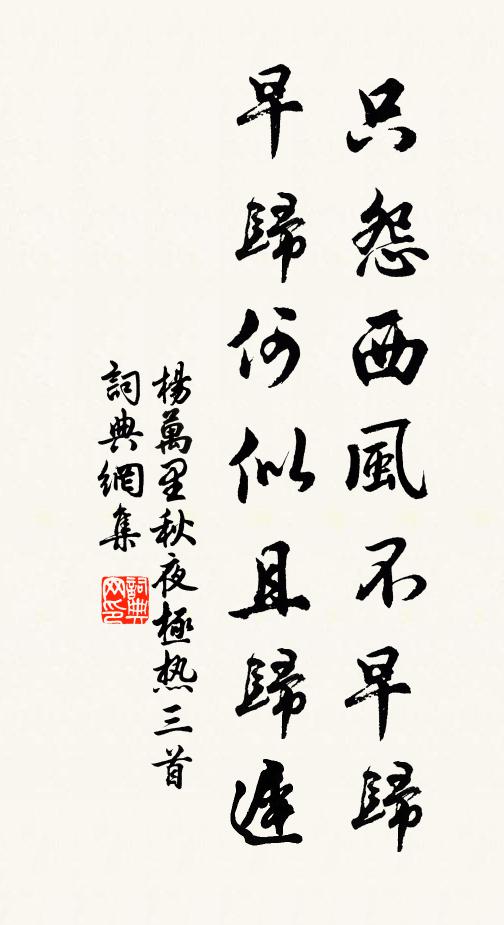 只怨西風不早歸
早歸何似且歸遲
楊萬里秋夜極热三首
詞典網集
詞典网印